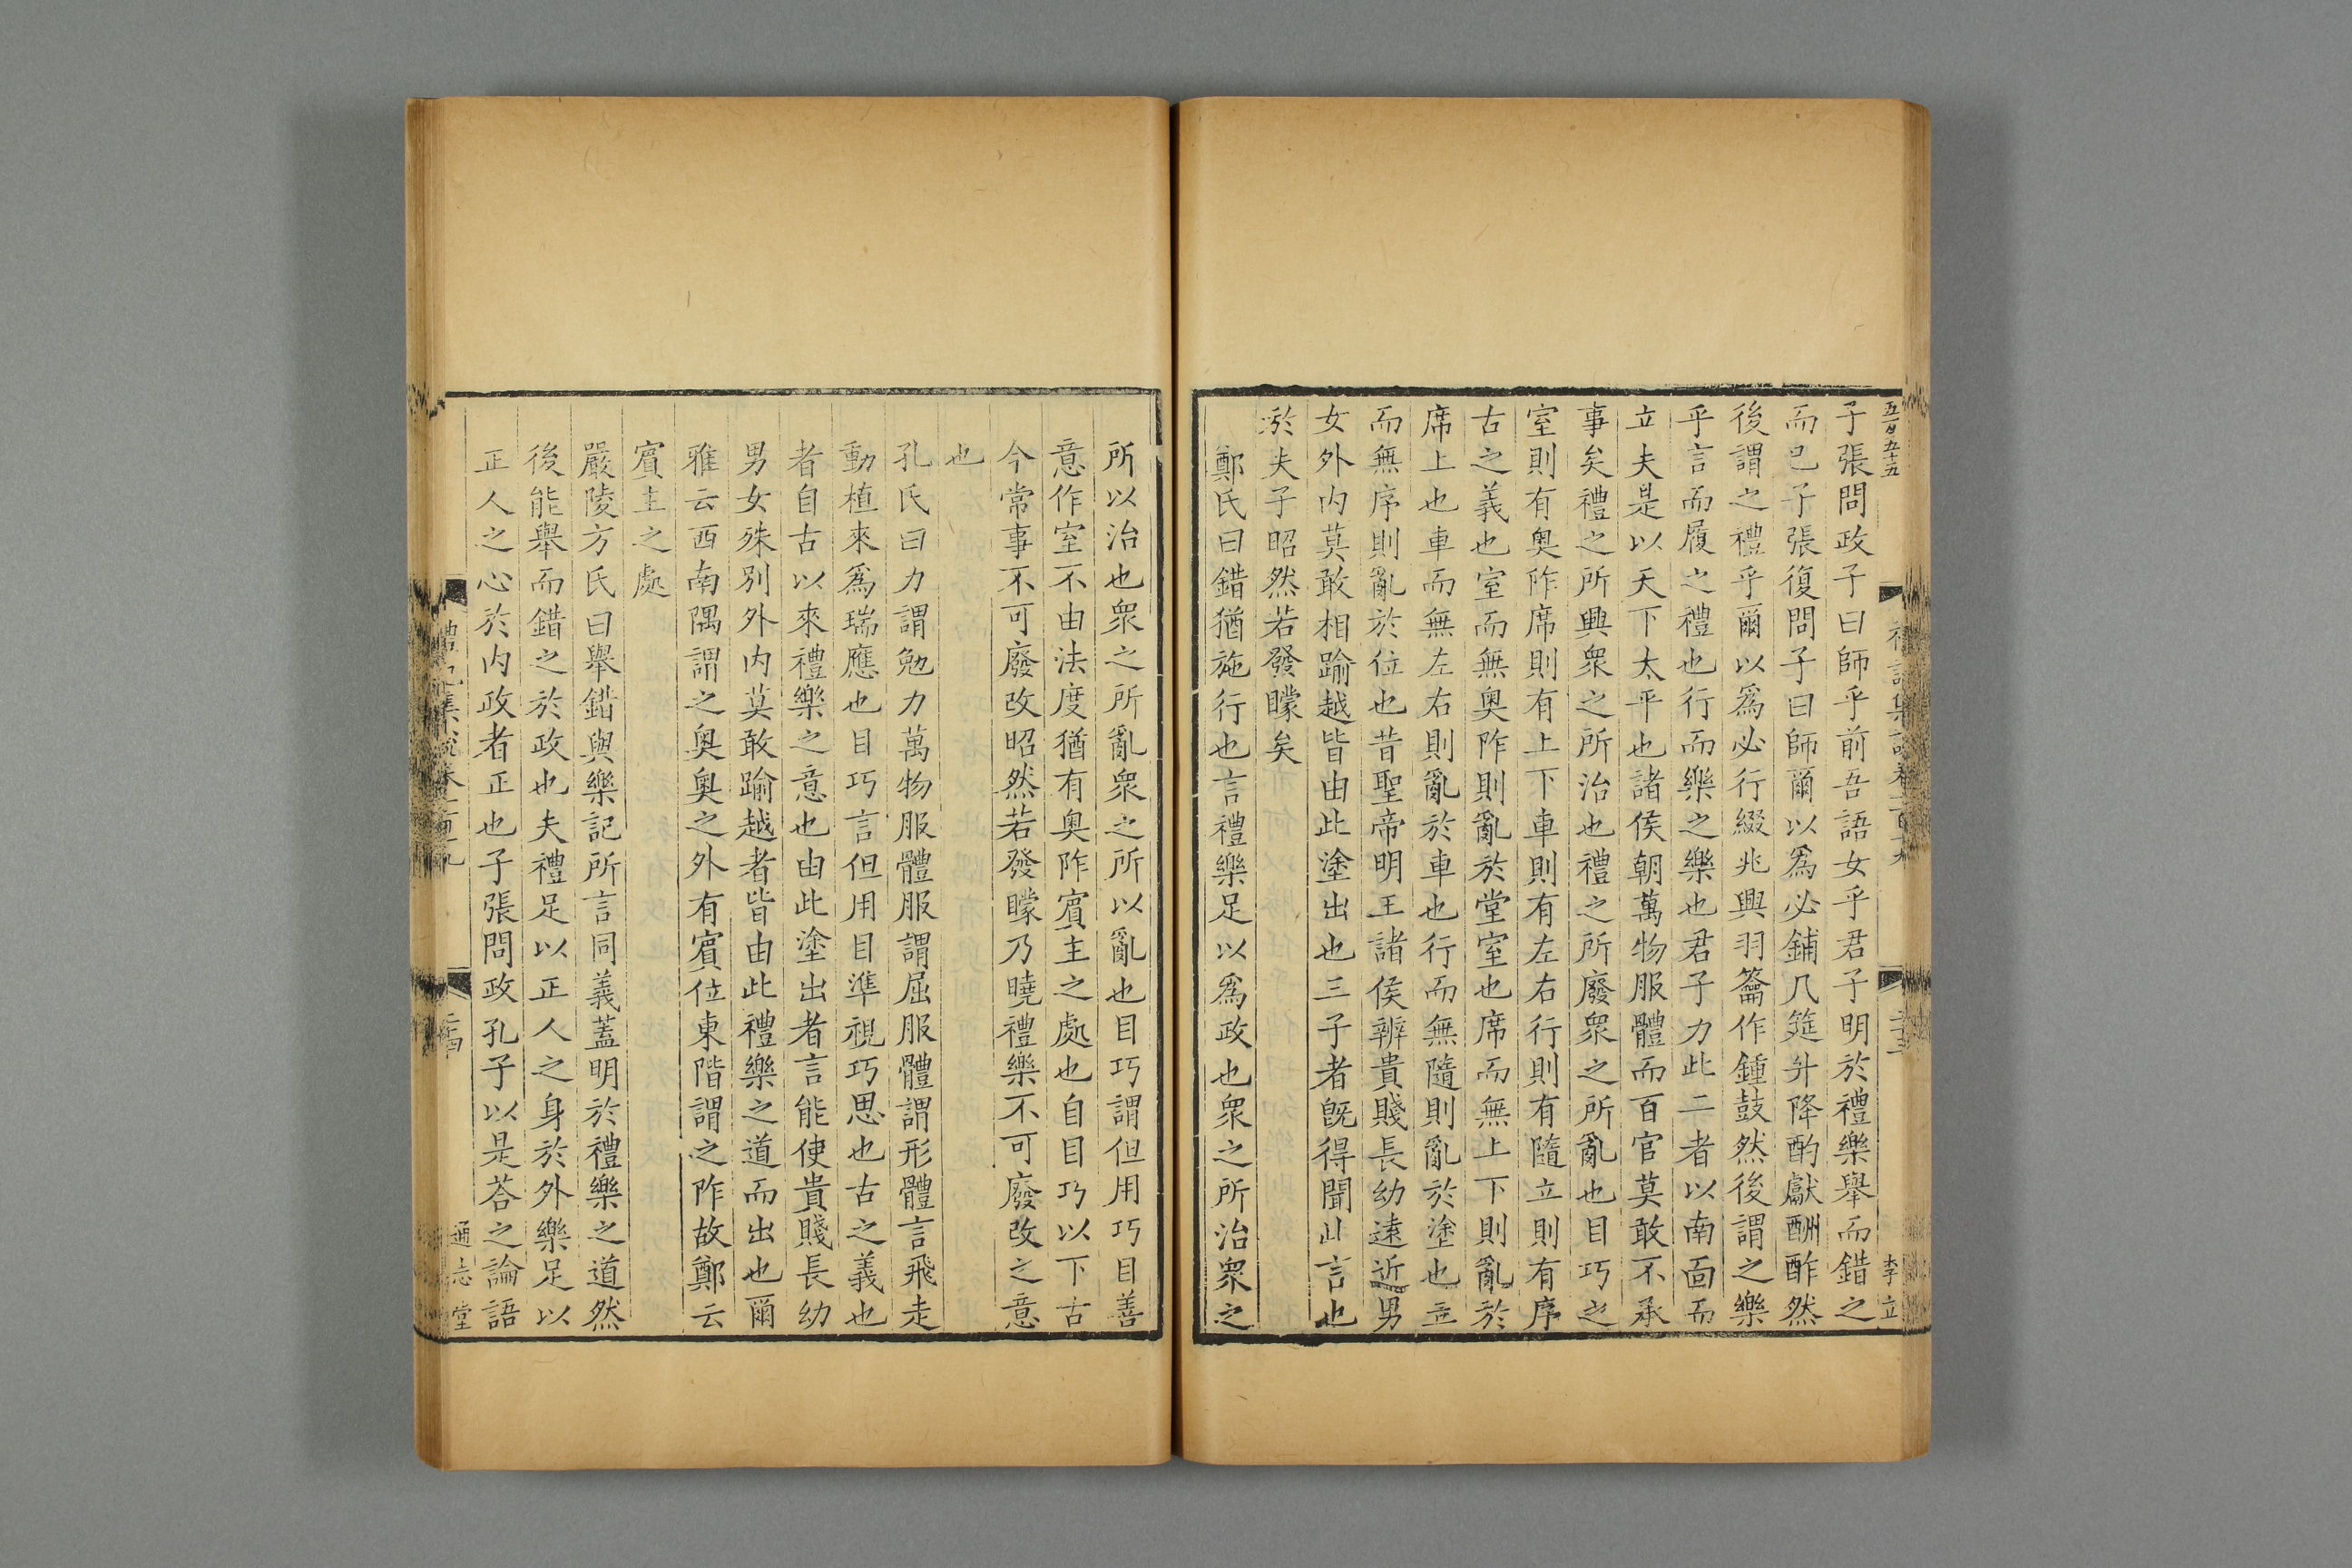 子張問政子曰師乎前吾語女乎君子明於禮樂舉而錯之
而已子張復問子曰師爾以爲必鋪几筵升降酌獻酬酢然
後謂之禮乎爾以爲必行綴兆興羽籥作鍾鼓然後謂之樂
乎言而履之禮也行而樂之樂也君子力此二者以南面而
立夫是以天下太平也諸侯朝萬物服體而百官莫敢不承
事矣禮之所興衆之所治也禮之所廢衆之所亂也目巧之
室則有奧阼席則有上下車則有左右行則有隨立則有序
古之義也室而無奧阼則亂於堂室也席而無上下則亂於
席上也車而無左右則亂於車也行而無隨則亂於塗也立
而無序則亂於位也昔聖帝明王諸侯辨貴賤長幼遠近男
女外内莫敢相踰越皆由此塗出也三子者旣得聞此言也
於夫子昭然若發矇矣
鄭氏曰錯猶施行也言禮樂足以爲政也衆之所治衆之
李立
所以治也衆之所亂衆之所以亂也目巧謂但用巧目善
意作室不由法度猶有奧阼賓主之處也自目巧以下古
今常事不可廢改昭然若發矇乃曉禮樂不可廢改之意
也
孔氏曰力謂勉力萬物服體服謂屈服體謂形體言飛走
動植來爲瑞應也目巧言但用目準視巧思也古之義也
者自古以來禮樂之意也由此塗出者言能使貴賤長幼
男女殊別外内莫敢踰越者皆由此禮樂之道而出也爾
雅云西南隅謂之奧奧之外有賓位東階謂之阼故鄭云
賓主之處
嚴陵方氏曰舉錯與樂記所言同義蓋明於禮樂之道然
後能舉而錯之於政也夫禮足以正人之身於外樂足以
正人之心於内政者正也子張問政孔子以是荅之論語
禮記集說卷一百十九
二十四
通志堂